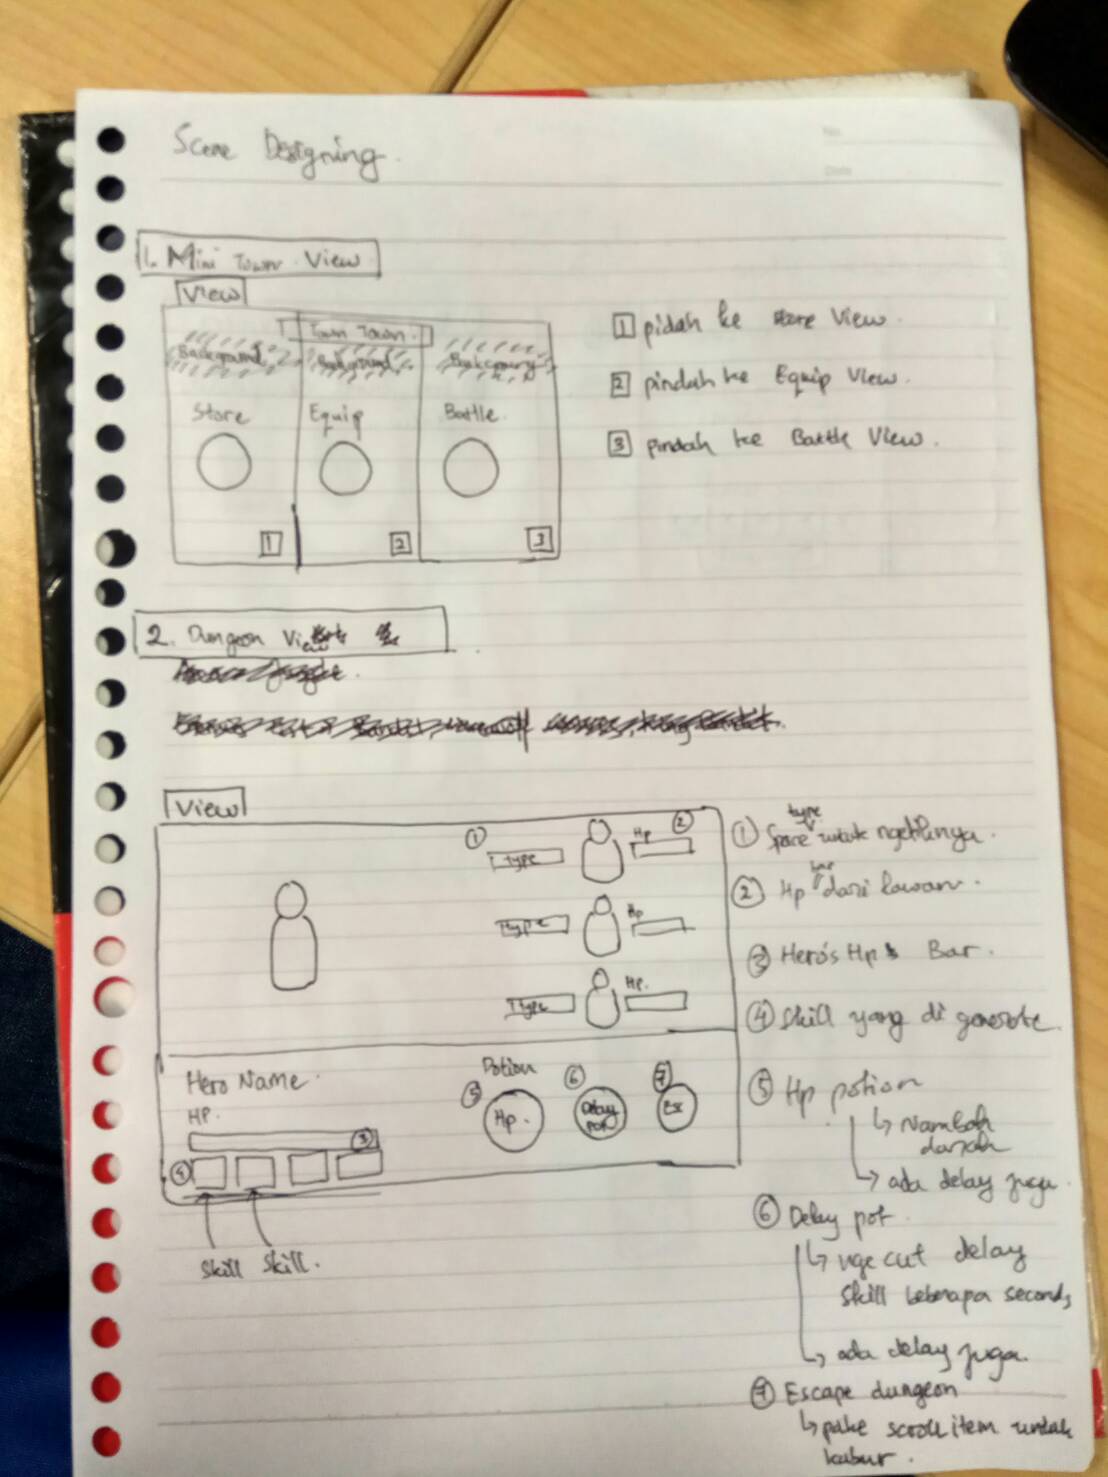 Scene Designing.
No.
Date
1. Mini Town View
View
Town Town.
Background Background Background
Store Equip Battle.
1 2 3
1 pidah ke store View.
2 pindah ke Equip View.
3 pindah ke Battle View.
2. Dungeon View
View
1 2
type Hp
Type Hp
Type Hp.
Hero Name.
HP.
3
4
Skill Skill.
Potion
5 Hp.
6 Delay pot
7 Esc
1 Space type untuk ngetiknya.
2 Hp bar dari lawan.
3 Hero's Hp Bar.
4 Skill yang di generate.
5 Hp potion
↳ Nambah
darah
↳ ada delay juga.
6 Delay pot.
↳ nge cut delay
Skill beberapa seconds
↳ ada delay juga.
7 Escape dungeon
↳ pake scroll item untuk
kabur.